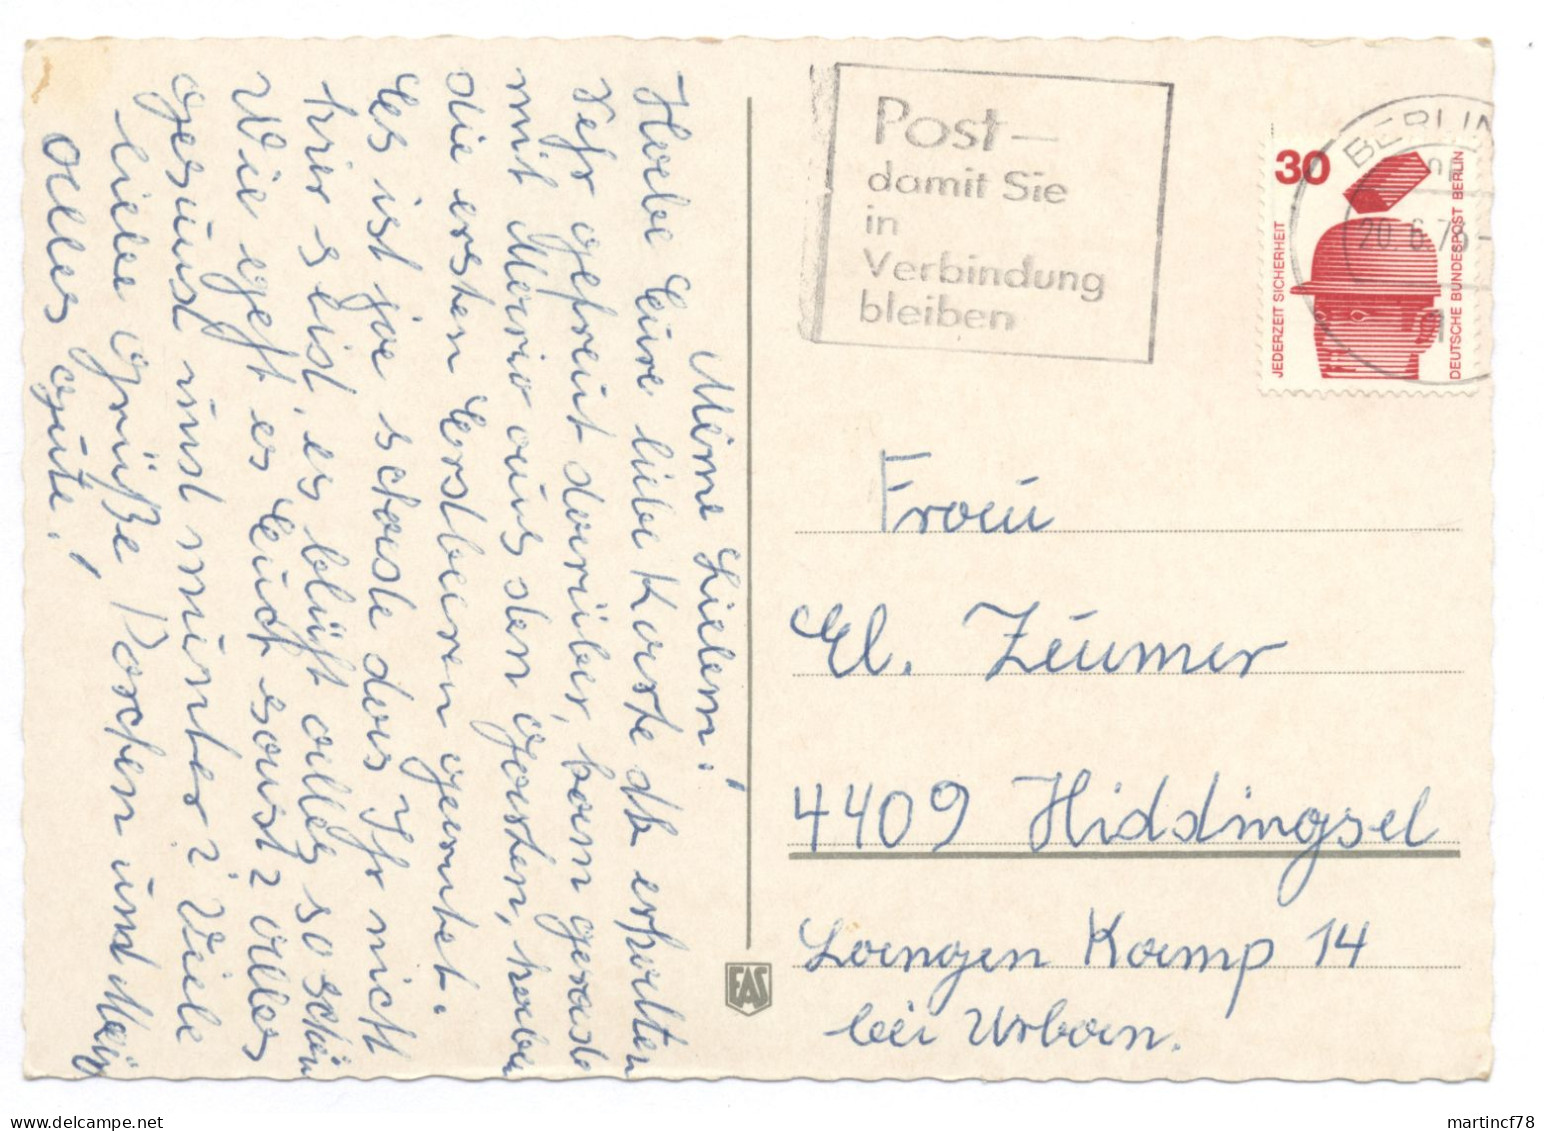 Meine Lieben!
Habe Eure liebe Karte dk erhalten
sehr gefreut darüber, gerade
mit Mario aus den Garten, habe
die ersten Erdbeeren geerntet.
Es ist ja schade das Ihr nicht
hier seist, es blüht alles so schön
Wie geht es Euch sonst? alles
gesund und munter? Viele
liebe Grüße und
alles gute!
Post –
damit Sie
in
Verbindung
bleiben
BERLIN
20.6.7
1
30
JEDERZEIT SICHERHEIT
DEUTSCHE BUNDESPOST BERLIN
Frau
El. Zeumer
4409 Hiddingsel
Langen Kamp 14
bei Urban.
FAS
martincf78